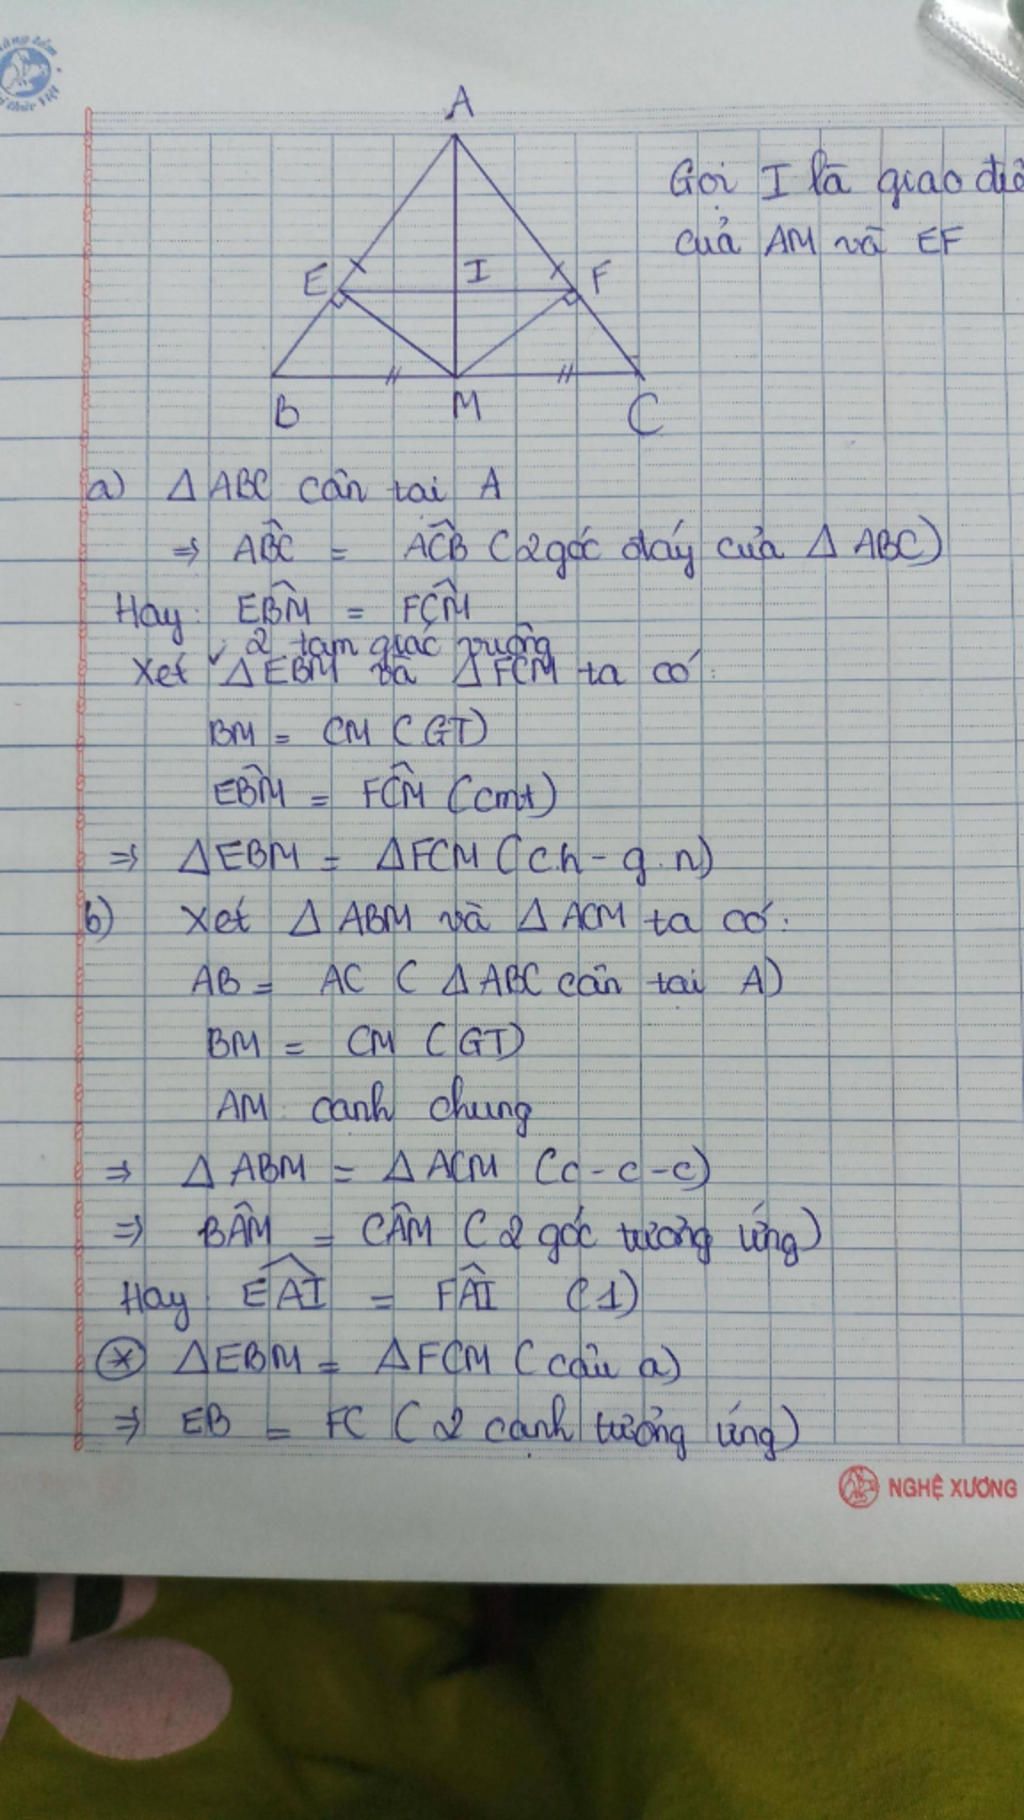 A
Gọi I là giao
của AM và EF
E I F
B M C
a) Δ ABC cân tại A
⇒ ABC = ACB (2 góc đáy của Δ ABC)
Hay: EBM = FCM
2 tam giác vuông
Xét ΔEBM và ΔFCM ta có:
BM = CM (GT)
EBM = FCM (cmt)
⇒ ΔEBM = ΔFCM (c.h - g.n)
b) Xét Δ ABM và Δ ACM ta có:
AB = AC (ΔABC cân tại A)
BM = CM (GT)
AM: cạnh chung
⇒ Δ ABM = Δ ACM (c-c-c)
⇒ BAM = CAM (2 góc tương ứng)
Hay: EAI = FAI (1)
* ΔEBM = ΔFCM (câu a)
⇒ EB = FC (2 cạnh tương ứng)
NGHỆ XƯƠNG